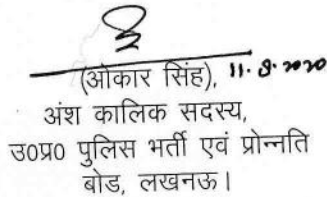 (ओकार सिंह), 11.9.2020
अंश कालिक सदस्य,
उ०प्र० पुलिस भर्ती एवं प्रोन्नति
बोड, लखनऊ।